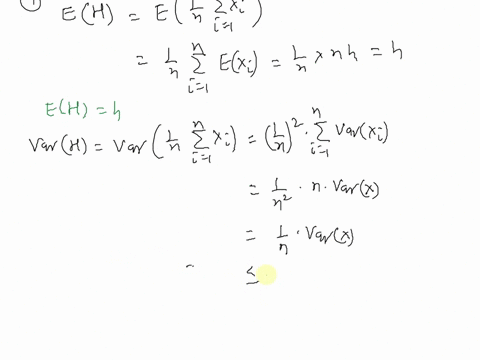 ① E(H) = E(1/n ∑_{i=1} xi)
= 1/n ∑_{i=1}^{n} E(xi) = 1/n × n h = h
E(H) = h
Var(H) = Var(1/n ∑_{i=1}^{n} xi) = (1/n)^2 · ∑_{i=1}^{n} Var(xi)
= 1/n^2 · n · Var(x)
= 1/n · Var(x)
- ≤